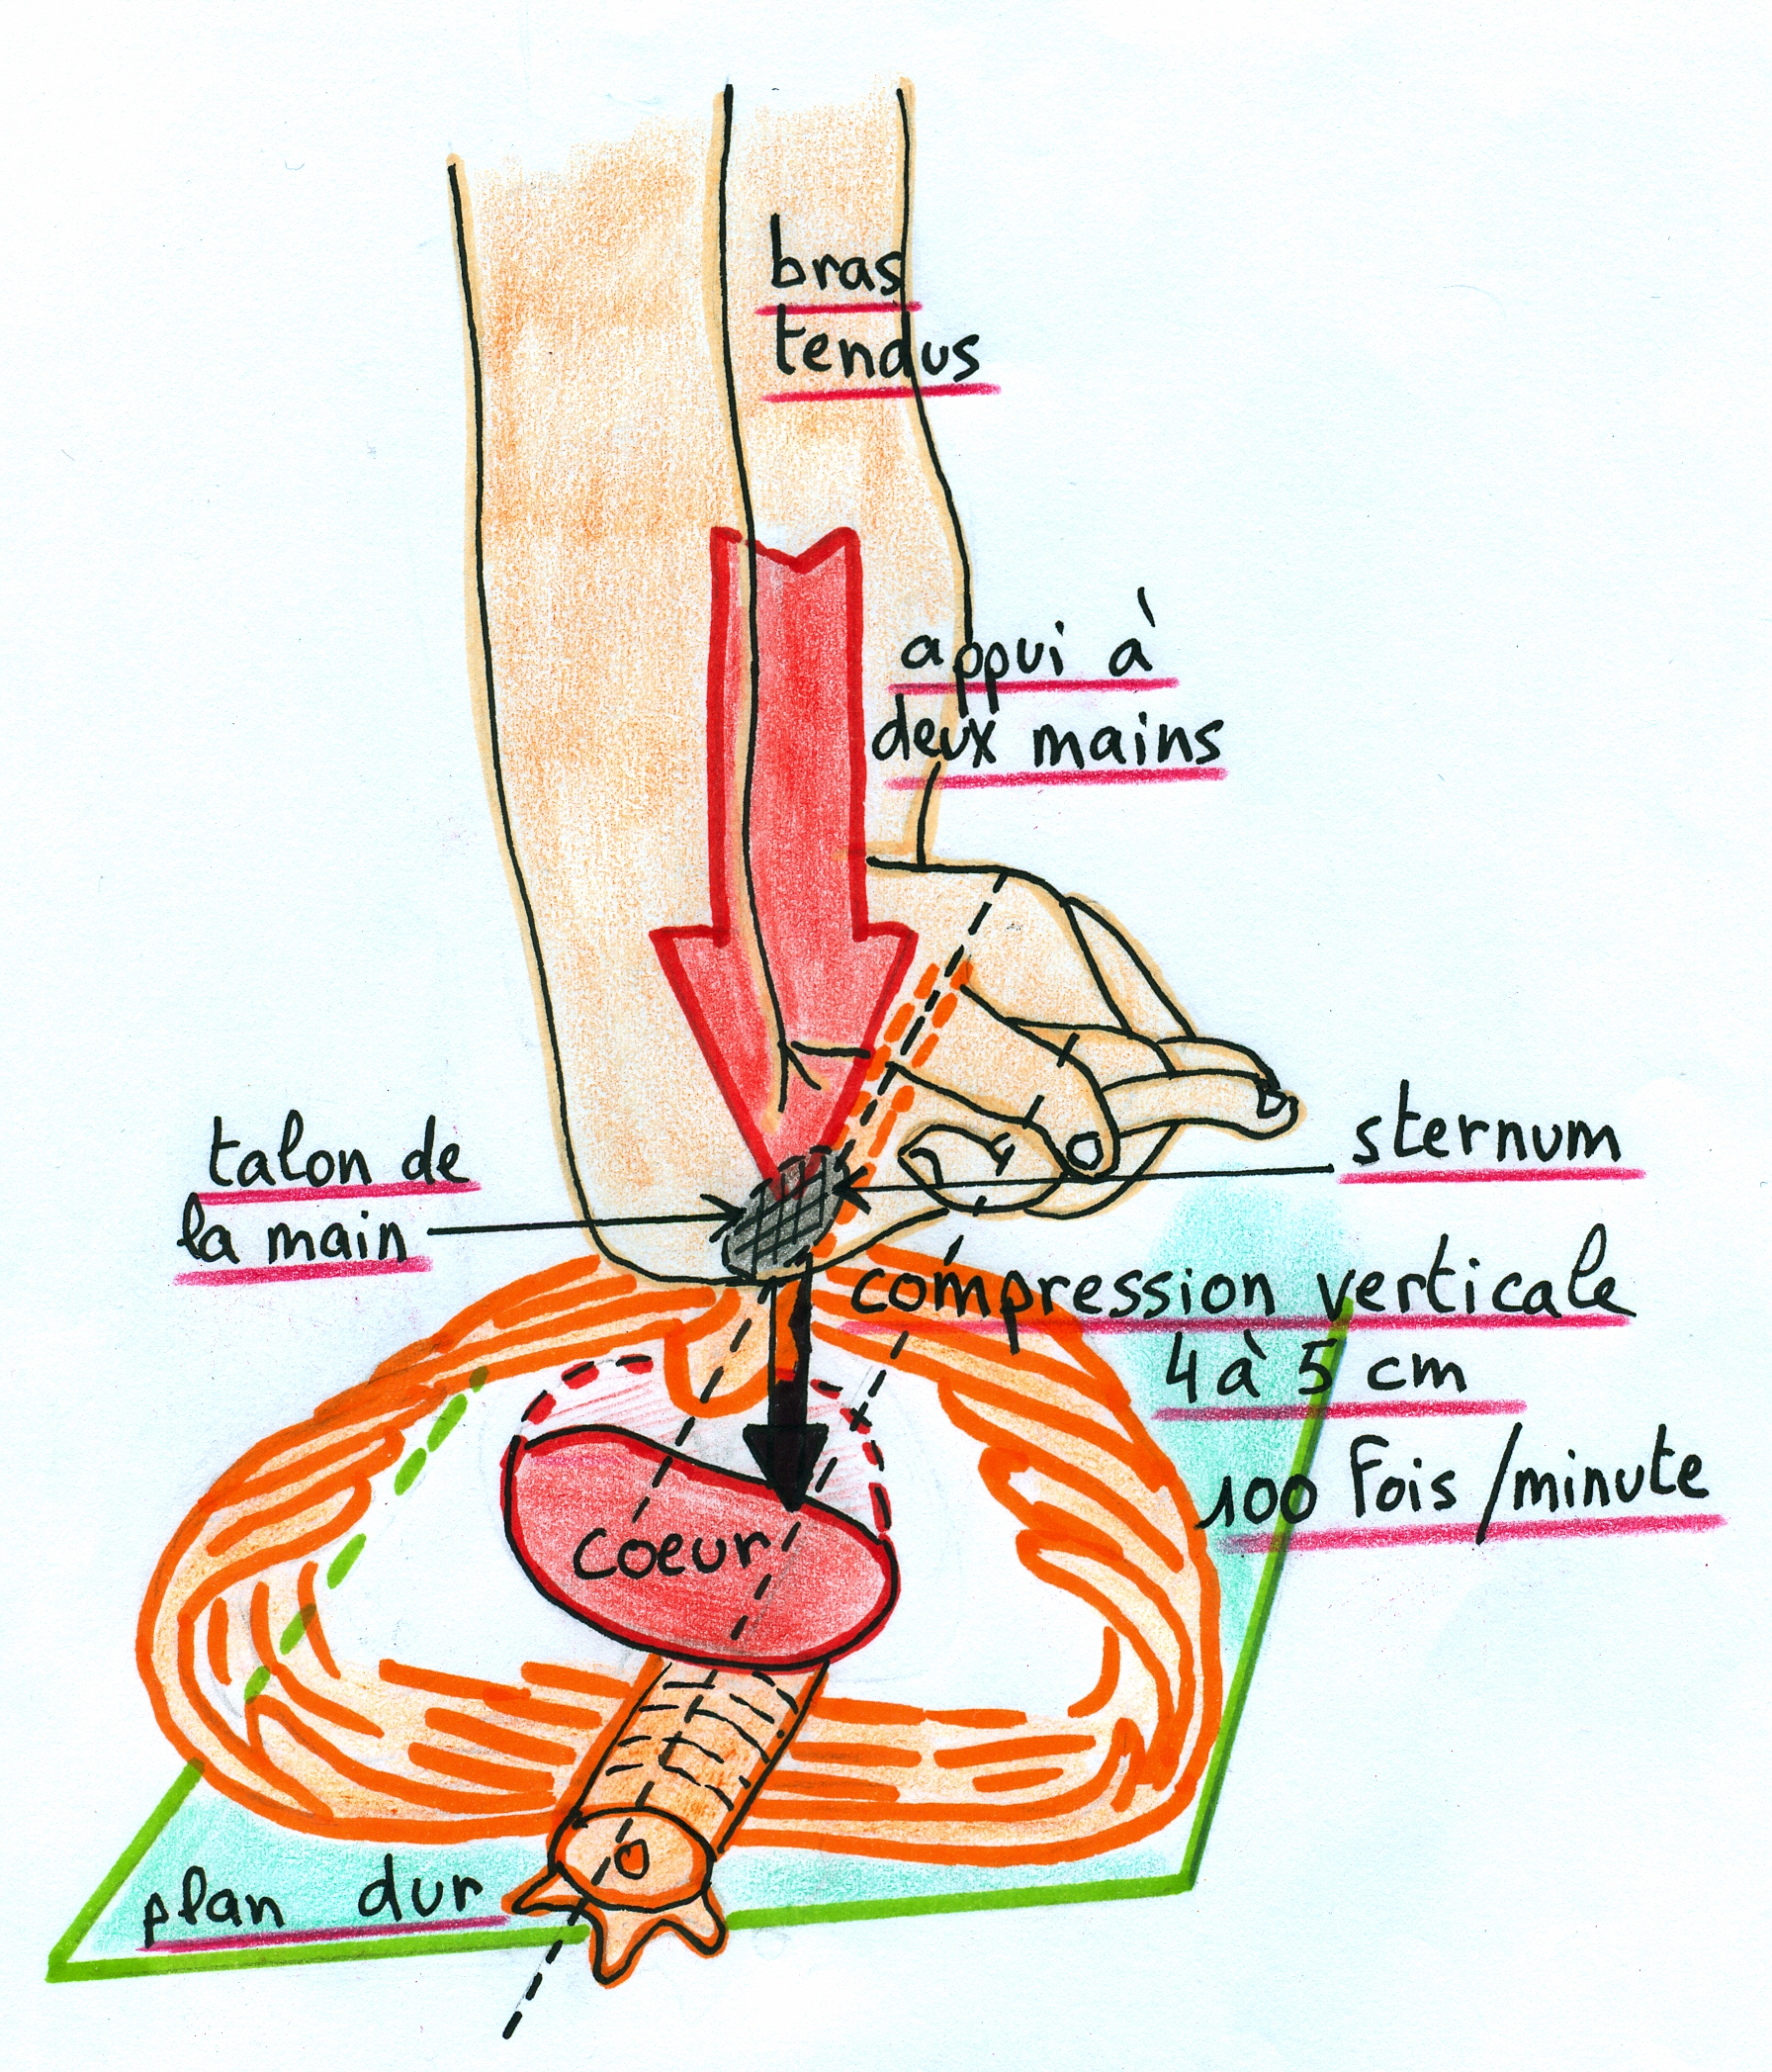 bras
tendus
appui à
deux mains
talon de
la main
sternum
compression verticale
4 à 5 cm
100 Fois /minute
coeur
plan dur